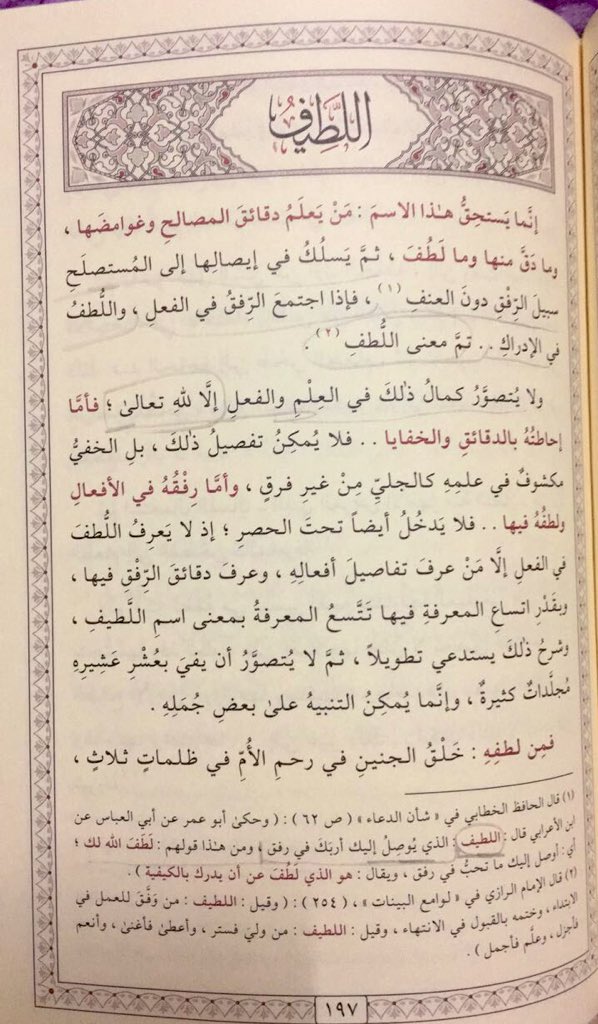 اللَّطِيفُ
إنَّما يَستحِقُّ هـٰذا الاسمَ : مَنْ يَعلَمُ دقائقَ المصالحِ وغوامضَها ،
وما دَقَّ منها وما لَطُفَ ، ثمَّ يَسلُكُ في إيصالِها إلى المُستصلَحِ
سبيلَ الرِّفْقِ دونَ العنفِ (١) ، فإذا اجتمعَ الرِّفقُ في الفعلِ ، واللُّطفُ
في الإدراكِ .. تمَّ معنى اللُّطفِ (٢) .
ولا يُتصوَّرُ كمالُ ذٰلكَ في العِلْمِ والفعلِ إلَّا للهِ تعالىٰ ؛ فأمَّا
إحاطتُهُ بالدقائقِ والخفايا .. فلا يُمكِنُ تفصيلُ ذٰلكَ ، بلِ الخفيُّ
مكشوفٌ في علمِهِ كالجليِّ مِنْ غيرِ فرقٍ ، وأمَّا رِفْقُهُ في الأفعالِ
ولطفُهُ فيها .. فلا يَدخُلُ أيضاً تحتَ الحصرِ ؛ إذ لا يَعرِفُ اللُّطفَ
في الفعلِ إلَّا مَنْ عرفَ تفاصيلَ أفعالِهِ ، وعرفَ دقائقَ الرِّفْقِ فيها ،
وبقَدْرِ اتساعِ المعرفةِ فيها تَتَّسعُ المعرفةُ بمعنى اسمِ اللَّطيفِ ،
وشرحُ ذٰلكَ يستدعي تطويلاً ، ثمَّ لا يُتصوَّرُ أن يفيَ بعُشْرِ عَشِيرِهِ
مُجلَّداتٌ كثيرةٌ ، وإنَّما يُمكِنُ التنبيهُ علىٰ بعضِ جُمَلِهِ .
فمِن لطفِهِ : خَلْقُ الجنينِ في رحمِ الأُمِّ في ظلماتٍ ثلاثٍ ،
(١) قال الحافظ الخطابي في « شأن الدعاء » ( ص ٦٢ ) : ( وحكىٰ أبو عمر عن أبي العباس عن
ابن الأعرابي قال : اللطيف : الذي يُوصِلُ إليك أربَكَ في رفق ، ومن هـٰذا قولهم : لَطَفَ الله لك ؛
أي : أوصل إليك ما تحبُّ في رفق ، ويقال : هو الذي لَطُفَ عن أن يدرك بالكيفية ) .
(٢) قال الإمام الرازي في « لوامع البينات » ، ( ٢٥٤ ) : ( وقيل : اللطيف : من وَفَّقَ للعمل في
الابتداء ، وختمه بالقبول في الانتهاء ، وقيل : اللطيف : من وليَ فستر ، وأعطىٰ فأغنىٰ ، وأنعم
فأجزل ، وعلَّم فأجمل ) .
١٩٧